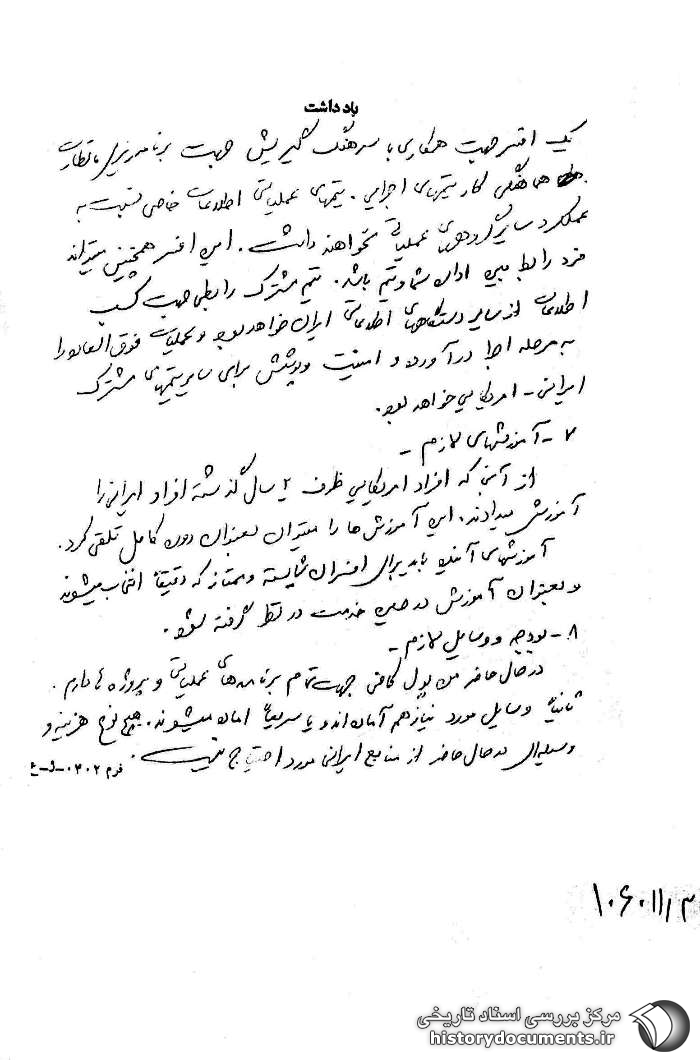 یادداشت
یک افسر جهت همکاری با سرهنگ جهت برنامه‌ریزی، نظارت
هماهنگی کار تیمهای اجرایی. تیمهای عملیاتی اطلاعات خاصی نسبت به
عملکرد سایر گروههای عملیاتی نخواهند داشت. این افسر همچنین میتواند
فرد رابط بین اداره شما و تیم باشد. تیم مشترک رابطی جهت کسب
اطلاعات از سایر دستگاههای اطلاعاتی ایران خواهد بود و عملیات فوق العاده را
به مرحله اجرا درآورده و امنیت و پوشش برای سایر تیمهای مشترک
ایرانی - امریکایی خواهد بود.
۷- آموزشهای لازم -
از آنجا که افراد امریکایی ظرف ۲ سال گذشته افراد ایرانی را
آموزش میدادند. این آموزش‌ها را میتوان بعنوان دوره کامل تلقی کرد.
آموزشهای آینده باید برای افسران شایسته و ممتاز که دقیقاً انتخاب میشوند
و بعنوان آموزش در حین خدمت در نظر گرفته شود.
۸- بودجه و وسایل لازم -
در حال حاضر من پول کافی جهت تمام برنامه‌های عملیاتی و پروژه ها دارم.
ثانیاً وسایل مورد نیاز هم آماده‌اند و یا سریعاً آماده میشوند. هیچ نوع هزینه و
وسیله‌ای در حال حاضر از منابع ایرانی مورد احتیاج نیست.
فرم ۳۰۲-د-ع
۱۰۶۰۱۱۱۳
مرکز بررسی اسناد تاریخی
historydocuments.ir